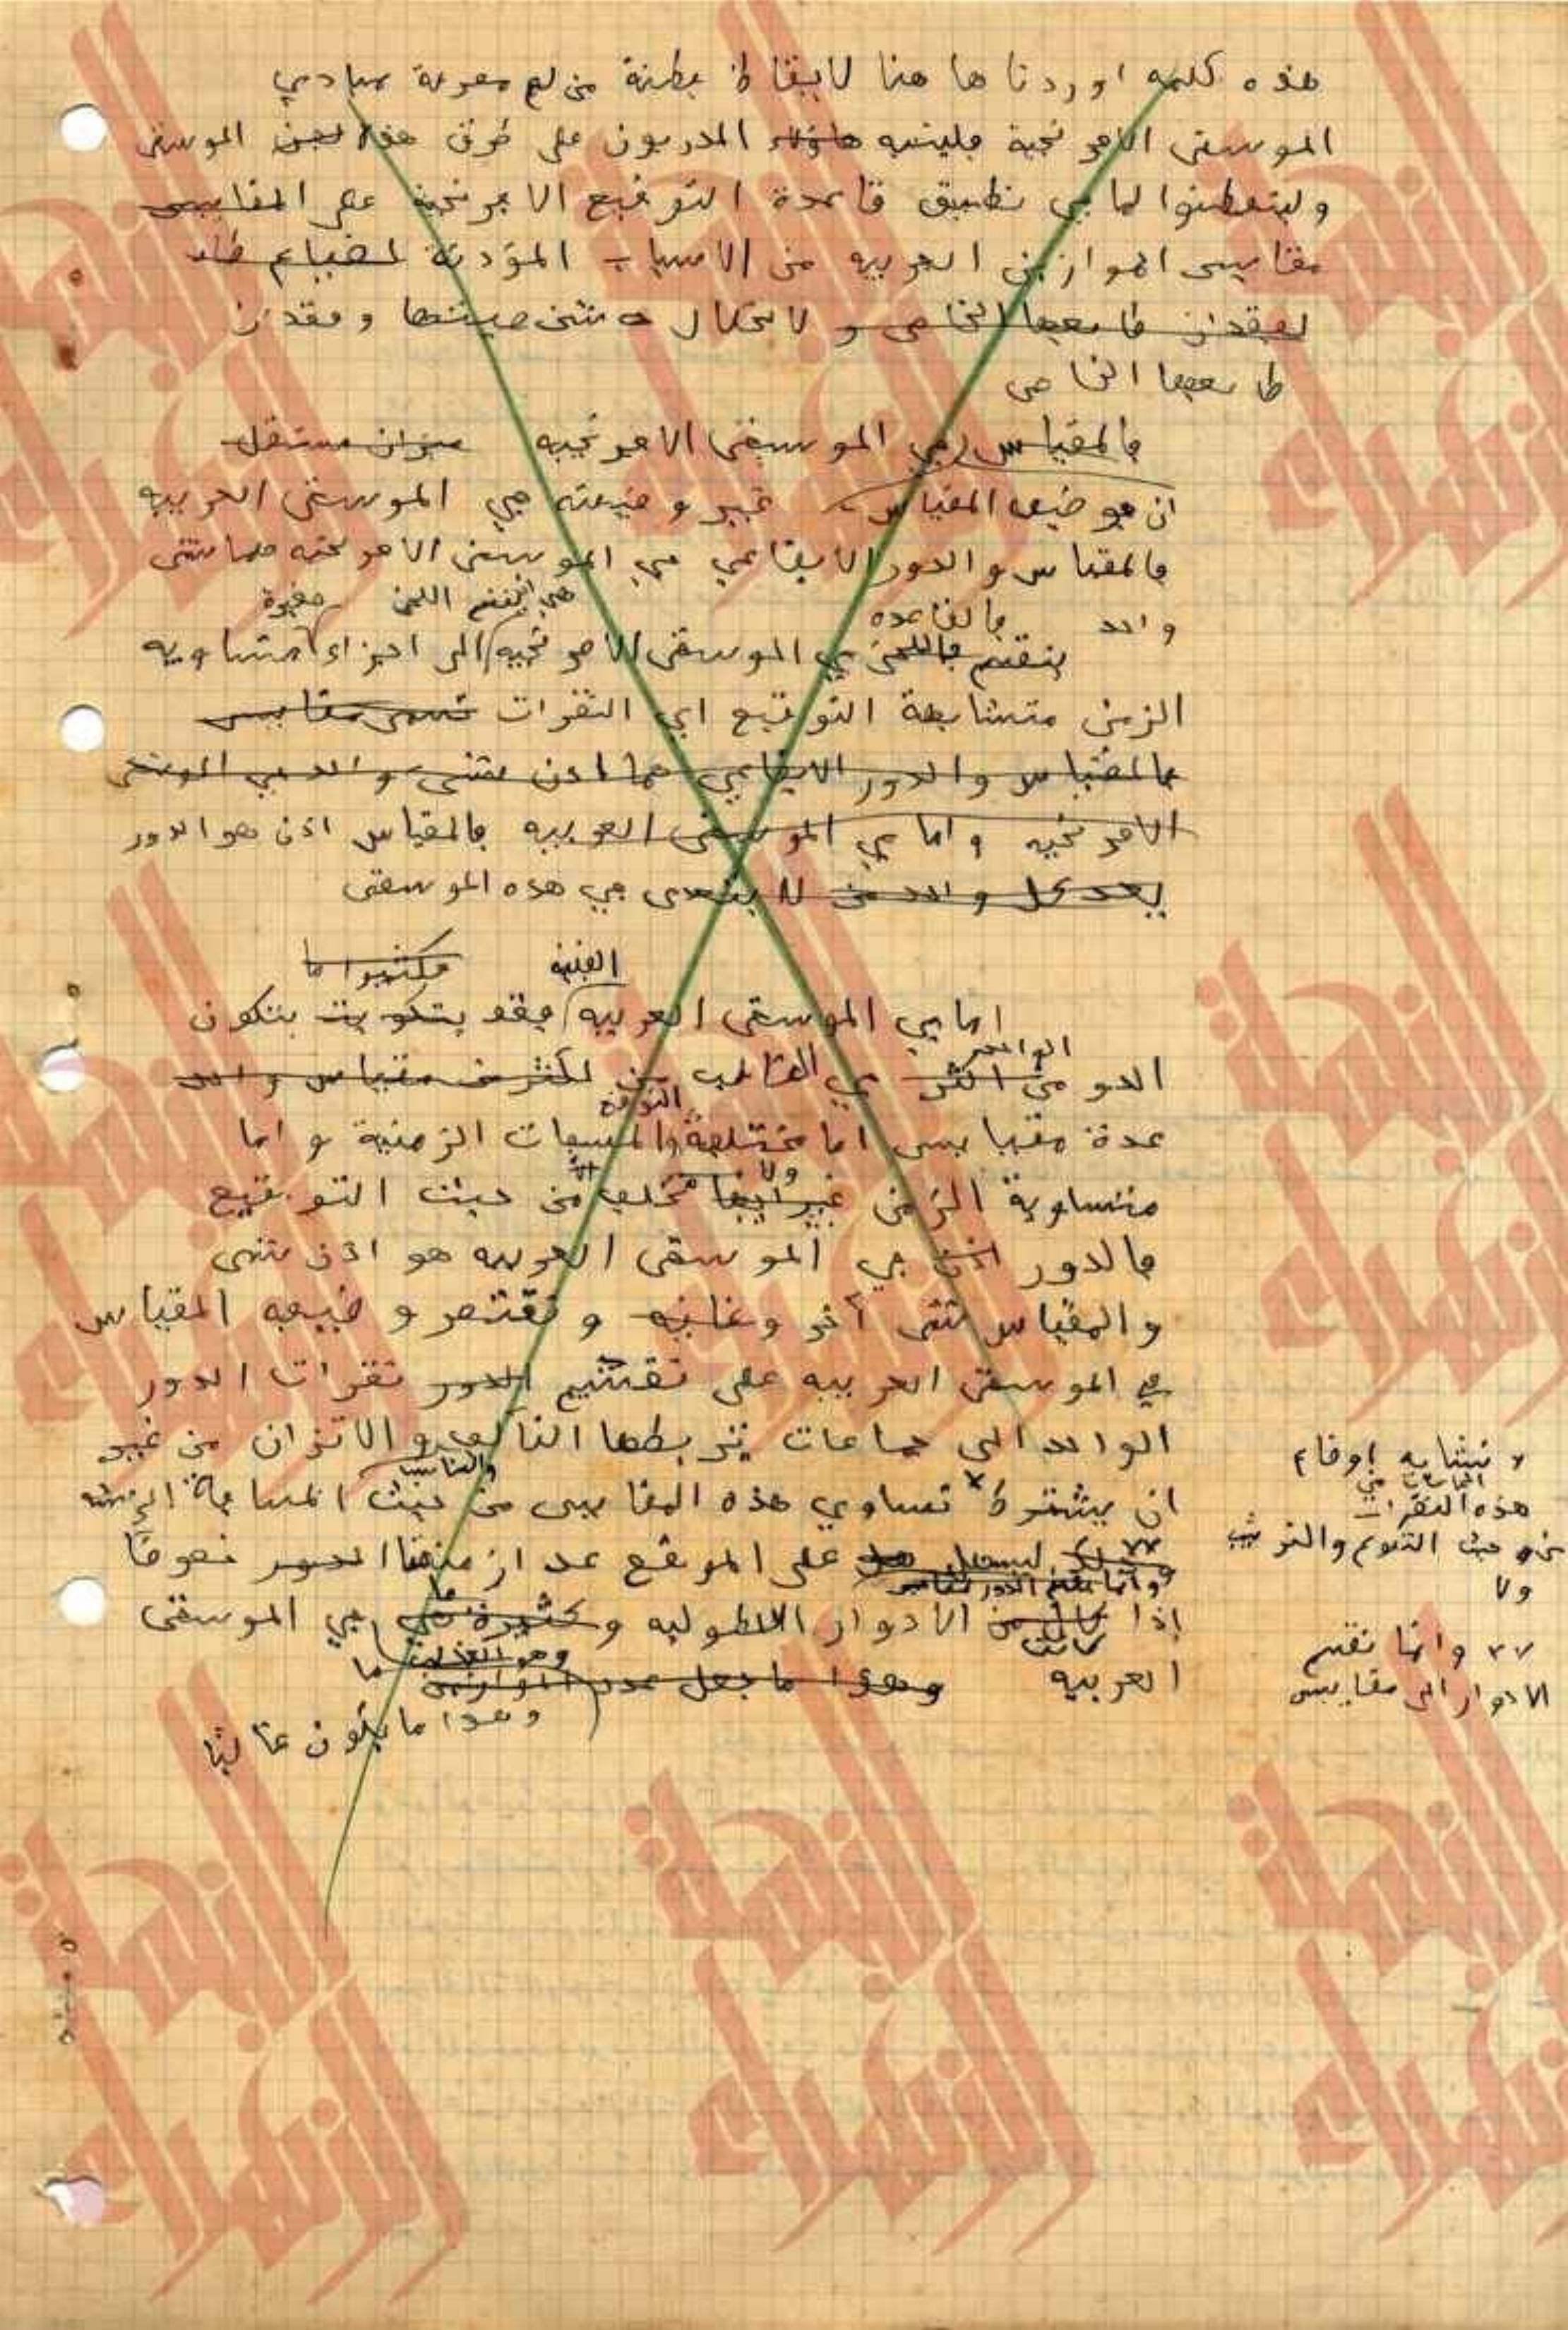 هذه كلمه اوردناها هنا لايقاظ فطنة من لهم معرفة بمبادي
الموسقى الافرنجية فلينتبه هاؤلاء المدربون على طرق هذه الموسقى
وليتفطنوا لما في تطبيق قاعدة التوقيع الافرنجية على المقاييس
مقاييس الموازين العربيه من الاسباب المؤدية لضياع
لفقدان طابعها الخاص و لانحلال شخصيتها وفقدان
طابعها الخاص
فالمقياس في الموسيقى الافرنجيه ميزان مستقل
ان موضع المقياس غير وضيعته في الموسقى العربيه
فالمقياس والدور الايقاعي في الموسقى الافرنجيه هما شئ
واحد فالقاعده هي ان يقسم اللحن صغيرة
ينقسم فاللحن في الموسقى الافرنجيه الى اجزاء متساويه
الزمن متشابهة التوقيع اي النقرات تسمى مقاييس
فالمقياس والدور الايقاعي هما اذن شئ واحد في الموسقى
الافرنجيه واما في الموسقى العربيه فالمقياس اذن هو الدور
يعد كل واحد من لا يتعدى في هذه الموسقى
الفنيه فكثيرا ما
اما في الموسقى العربيه فقد يتكون يتكون
الواحد
الدور من اكثر في الغالب من اكثر من مقياس واحد
عدة مقاييس اما مختلفة والمسافات الزمنية واما
ولا
متساوية الزمن غير انها تختلف من حيث التوقيع
فالدور اذن في الموسقى العربيه هو اذن شئ
والمقياس شئ آخر وغايه وتقتصر وضيعه المقياس
في الموسقى العربيه على تقسيم الدور نقرات الدور
الواحد الى جماعات يربطها التآلف والاتزان من غير
والتناسب
ان يشترط تساوي هذه المقاييس من حيث المسافة الزمنيه
وذلك ليسهل على الموقع عد ازمنة الدور خصوصا
وانما تقسم الادوار مقاييس
إذا كانت من الادوار الطويله وكثيرة هي في الموسقى
العربيه وهذا ما يجعل عدد الموازين
وهذا ما يكون غالبا
x تشابه اوقاع
الجماعات من
هذه النقرات
من حيث الكم والترتيب
ولا
xx وانما تقسم
الادوار الى مقاييس